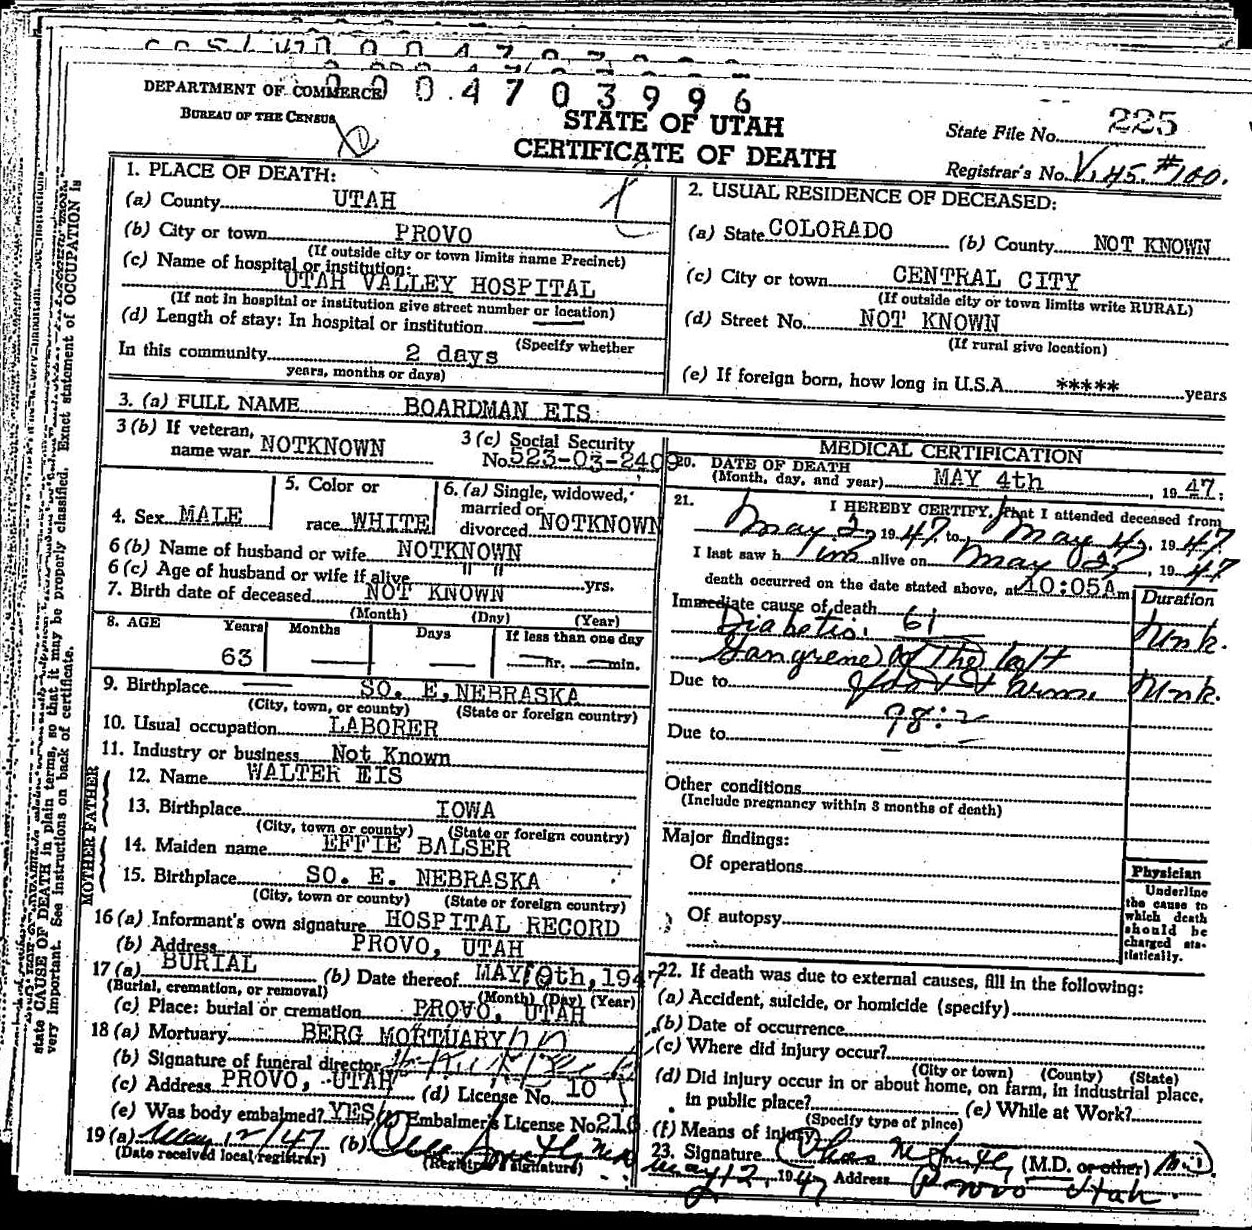 DEPARTMENT OF COMMERCE
0 0 0 4 7 0 3 9 9 6
BUREAU OF THE CENSUS
STATE OF UTAH
CERTIFICATE OF DEATH
State File No. 225
Registrar's No. V.45 #100.
1. PLACE OF DEATH:
(a) County UTAH
(b) City or town PROVO
(If outside city or town limits name Precinct)
(c) Name of hospital or institution:
UTAH VALLEY HOSPITAL
(If not in hospital or institution give street number or location)
(d) Length of stay: In hospital or institution
(Specify whether
In this community 2 days
years, months or days)
2. USUAL RESIDENCE OF DECEASED:
(a) State COLORADO (b) County NOT KNOWN
(c) City or town CENTRAL CITY
(If outside city or town limits write RURAL)
(d) Street No. NOT KNOWN
(If rural give location)
(e) If foreign born, how long in U.S.A. ***** years
3. (a) FULL NAME BOARDMAN EIS
3 (b) If veteran,
name war NOTKNOWN
3 (c) Social Security
No. 523-03-2409
4. Sex MALE
5. Color or
race WHITE
6. (a) Single, widowed,
married or
divorced NOTKNOWN
6 (b) Name of husband or wife NOTKNOWN
6 (c) Age of husband or wife if alive " " yrs.
7. Birth date of deceased NOT KNOWN
(Month) (Day) (Year)
8. AGE Years Months Days If less than one day
63 hr. min.
9. Birthplace SO. E, NEBRASKA
(City, town, or county) (State or foreign country)
10. Usual occupation LABORER
11. Industry or business Not Known
FATHER
12. Name WALTER EIS
13. Birthplace IOWA
(City, town or county) (State or foreign country)
MOTHER
14. Maiden name EFFIE BALSER
15. Birthplace SO. E. NEBRASKA
(City, town or county) (State or foreign country)
16 (a) Informant's own signature HOSPITAL RECORD
(b) Address PROVO, UTAH
17 (a) BURIAL (b) Date thereof MAY 10th, 1947
(Burial, cremation, or removal) (Month) (Day) (Year)
(c) Place: burial or cremation PROVO, UTAH
18 (a) Mortuary BERG MORTUARY
(b) Signature of funeral director
(c) Address PROVO, UTAH (d) License No. 10
(e) Was body embalmed? YES Embalmer's License No. 216
19 (a) May 12/47 (b)
(Date received local registrar) (Registrar's signature)
MEDICAL CERTIFICATION
20. DATE OF DEATH
(Month, day, and year) MAY 4th, 1947:
21. I HEREBY CERTIFY, That I attended deceased from
May 2, 1947 to May 4, 1947
I last saw him alive on May 1947
death occurred on the date stated above, at 10:05A m
Duration
Immediate cause of death 61
Diabetis. Unk.
Gangrene of The left
Due to Unk.
98:2
Due to
Other conditions
(Include pregnancy within 3 months of death)
Major findings:
Of operations
Of autopsy
Physician
Underline
the cause to
which death
should be
charged sta-
tistically.
22. If death was due to external causes, fill in the following:
(a) Accident, suicide, or homicide (specify)
(b) Date of occurrence
(c) Where did injury occur?
(City or town) (County) (State)
(d) Did injury occur in or about home, on farm, in industrial place,
in public place? (e) While at Work?
(Specify type of place)
(f) Means of injury
23. Signature (M.D. or other) M.D.
May 12, 1947 Address Provo Utah.
state CAUSE OF DEATH in plain terms, so that it may be properly classified. Exact statement of OCCUPATION is
very important. See instructions on back of certificate.